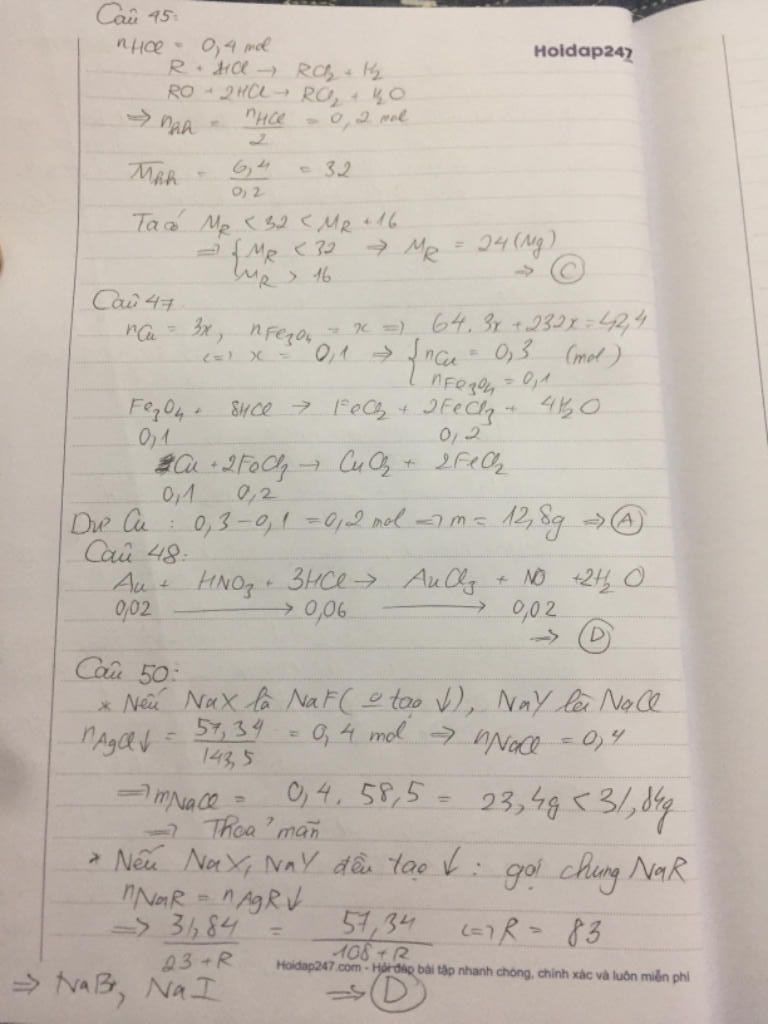 Câu 45:
nHCl = 0,4 mol
Hoidap247
R + 2HCl → RCl2 + H2
RO + 2HCl → RCl2 + H2O
=> nRR = nHCl/2 = 0,2 mol
MRR = 6,4/0,2 = 32
Ta có MR < 32 < MR + 16
=> { MR < 32 => MR = 24 (Mg)
MR > 16 => C
Câu 47
nCu = 3x, nFe3O4 = x => 64.3x + 232x = 42,4
<=> x = 0,1 => { nCu = 0,3 (mol)
nFe3O4 = 0,1
Fe3O4 + 8HCl → FeCl2 + 2FeCl3 + 4H2O
0,1 0,2
Cu + 2FeCl3 → CuCl2 + 2FeCl2
0,1 0,2
Dư Cu : 0,3 - 0,1 = 0,2 mol => m = 12,8g => A
Câu 48:
Au + HNO3 + 3HCl → AuCl3 + NO + 2H2O
0,02 → 0,06 → 0,02
=> D
Câu 50:
* Nếu NaX là NaF ( o tạo ↓ ), NaY là NaCl
nAgCl↓ = 57,34/143,5 = 0,4 mol => nNaCl = 0,4
=> mNaCl = 0,4 . 58,5 = 23,4g < 31,84g
=> Thoả mãn
* Nếu NaX, NaY đều tạo ↓ : gọi chung NaR
nNaR = nAgR↓
=> 31,84/23+R = 57,34/108+R <=> R = 83
Hoidap247.com - Hỏi đáp bài tập nhanh chóng, chính xác và luôn miễn phí
=> NaBr, NaI => D